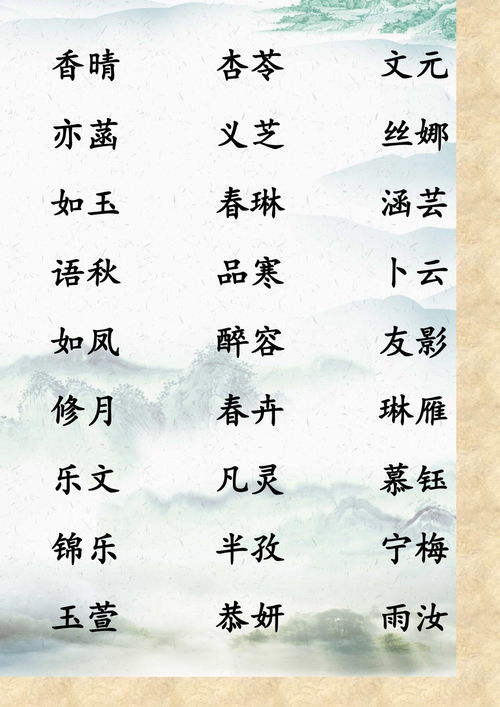 香晴 杏苓 文元
亦菡 义芝 丝娜
如玉 春琳 涵芸
语秋 品寒 卜云
如凤 醉容 友影
修月 春卉 琳雁
乐文 凡灵 慕钰
锦乐 半孜 宁梅
玉萱 恭妍 雨汝